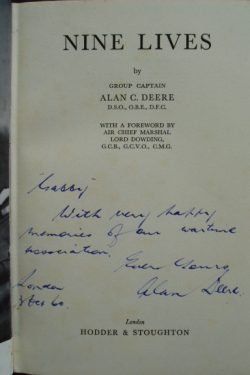 NINE LIVES
by
GROUP CAPTAIN
ALAN C. DEERE
D.S.O., O.B.E., D.F.C.
WITH A FOREWORD BY
AIR CHIEF MARSHAL
LORD DOWDING,
G.C.B., G.C.V.O., C.M.G.
'Gabby'
With very happy
memories of our wartime
association.
Ever Yours,
London
Alan Deere.
London
HODDER & STOUGHTON